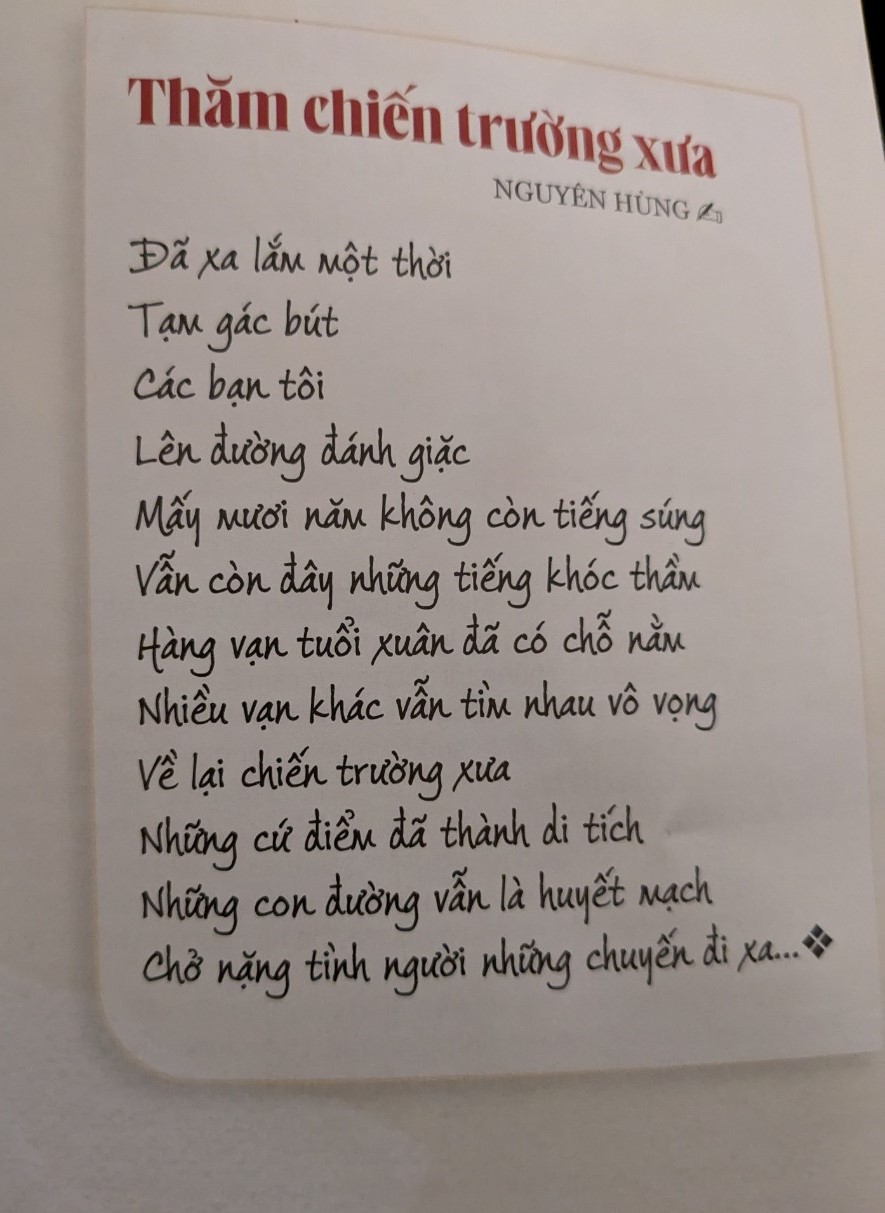 Thăm chiến trường xưa
NGUYÊN HÙNG ✍
Đã xa lắm một thời
Tạm gác bút
Các bạn tôi
Lên đường đánh giặc
Mấy mươi năm không còn tiếng súng
Vẫn còn đây những tiếng khóc thầm
Hàng vạn tuổi xuân đã có chỗ nằm
Nhiều vạn khác vẫn tìm nhau vô vọng
Về lại chiến trường xưa
Những cứ điểm đã thành di tích
Những con đường vẫn là huyết mạch
Chở nặng tình người những chuyến đi xa...❖